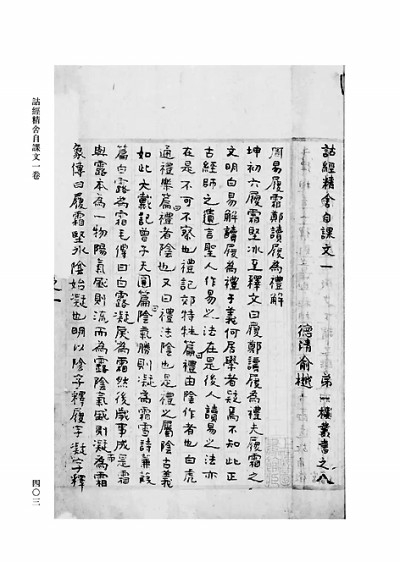 詁經精舍自課文一 第一樓叢書之八
德清俞樾
周易履霜鄭讀履為禮解
坤初六履霜堅冰至釋文曰履鄭讀履為禮夫履霜之
文明白易解讀履為禮于義何居學者疑焉不知此正
古經師之遺言聖人作易之法在是後人讀易之法亦
在是不可不察也禮記郊特牲篇禮由陰作者也白虎
通禮樂篇禮者陰也又曰禮法陰也是禮之屬陰古義
如此大戴記曾子天圓篇陰氣勝則凝為霜雪詩蒹葭
篇白露為霜毛傳曰白露凝戾為霜然後歲事成是霜
與露本為一物陽氣盛則流而為露陰氣盛則凝而為霜
象傳曰履霜堅冰陰始凝也明以陰字釋履字凝字釋
詁經精舍自課文一卷
四〇三